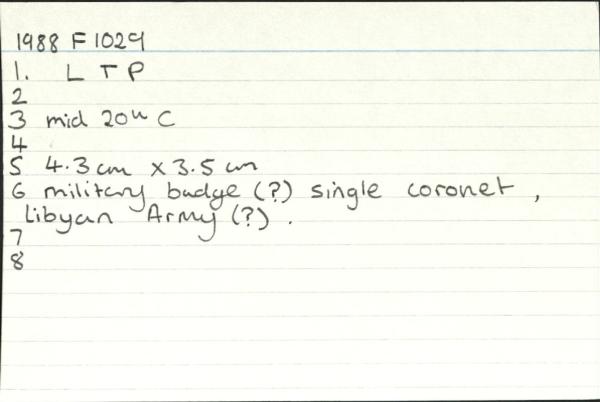 1988 F 1029
1. L T P
2
3 mid 20th C
4
5 4.3 cm x 3.5 cm
6 military badge (?) single coronet,
Libyan Army (?).
7
8